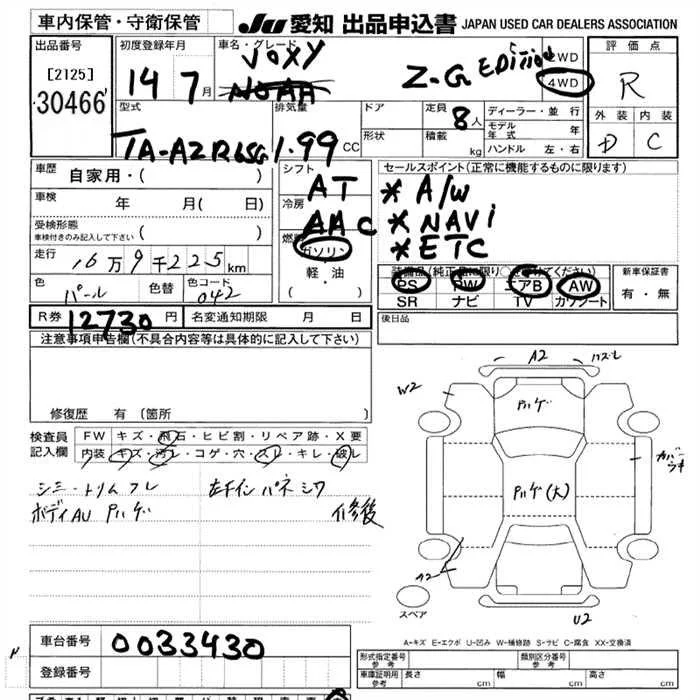 車内保管・守衛保管
JU 愛知 出品申込書 JAPAN USED CAR DEALERS ASSOCIATION
出品番号
[2125]
30466
初度登録年月
14 7月
車名・グレード
VOXY
NOAH
Z-G EDITION
2WD
4WD
評価点
R
外装 内装
D C
型式
TA-AZR65G
排気量
1.99 CC
ドア
形状
定員 8人
積載 kg
ディーラー・並行
モデル年式 年
ハンドル 左・右
車歴 自家用・( )
車検 年 月( 日)
受検形態
車検付きのみ記入して下さい ( )
走行 16万9千225km
色 パール 色替 色コード 042
シフト
AT
冷房
AAC
燃料
ガソリン
軽・油
( ・ )
セールスポイント(正常に機能するものに限ります)
* A/W
* NAVi
* ETC
装備品(純正品に限り○を付けてください)
PS PW エアB AW
SR ナビ TV カワシート
新車保証書
有・無
R券 12730 円 名変通知期限 月 日
後日品
注意事項申告欄(不具合内容等は具体的に記入して下さい)
修復歴 有 (箇所 )
検査員記入欄 FW キズ・飛石・ヒビ割・リペア跡・X要
内装 キズ・汚レ・コゲ・穴・スレ・キレ・破レ
シミ・トリムフレ
ボディAU Pハゲ
修後
A2 ハズレ
W2
Pハゲ
Pハゲ(大)
A2
U2
スペア
A-キズ E-エクボ U-凹み W-補修跡 S-サビ C-腐食 XX-交換済
車台番号 0033430
登録番号
形式指定番号 参考
類別区分番号 参考
車庫証明用 参考 長さ cm 幅 cm 高さ cm